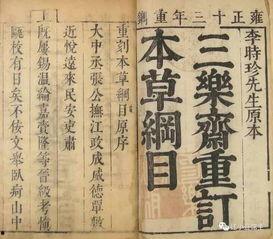 雍正十三年重鐫
李時珍先生原本
三樂齋重訂
本草綱目
重刻本草綱目原序
大中丞張公撫江政成威德覃敷
近悅遠來民安吏肅
既屢錫溫綸嘉賚隆等晉級考
校有日矣不佞文舉臥痾山中